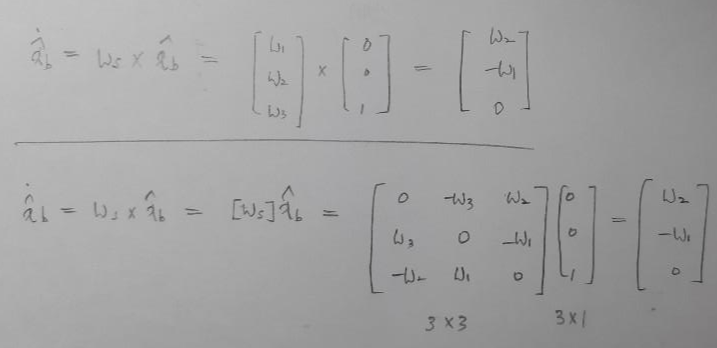 ẋ̂_b = ω_s × x̂_b = [ω₁ ω₂ ω₃] × [0 0 1] = [ω₂ -ω₁ 0]
ẋ̂_b = ω_s × x̂_b = [ω_s] x̂_b = [0 -ω₃ ω₂; ω₃ 0 -ω₁; -ω₂ ω₁ 0] [0 0 1] = [ω₂ -ω₁ 0]
3×3 3×1